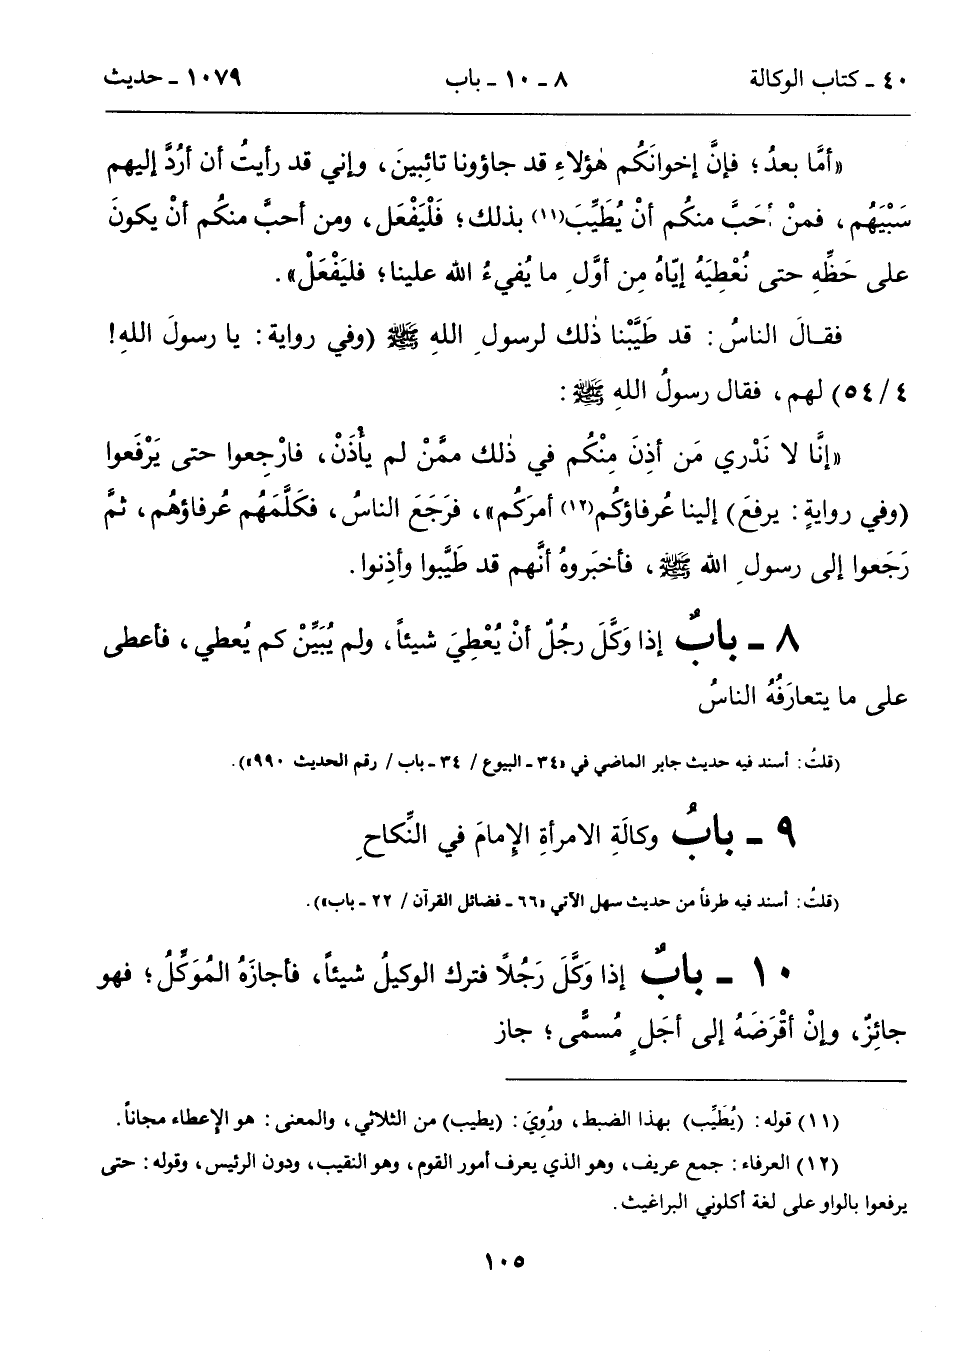 ٤٠ ـ كتاب الوكالة ٨ ـ ١٠ ـ باب ١٠٧٩ ـ حديث
«أمَّا بعدُ؛ فإنَّ إخوانَكُم هٰؤلاءِ قد جاؤونا تائِبينَ، وإني قد رأيتُ أن أرُدَّ إليهم
سَبْيَهُم، فمنْ أحَبَّ منكُم أنْ يُطَيِّبَ(١١) بذلك؛ فَلْيَفْعَل، ومن أحبَّ منكُم أنْ يكونَ
على حَظِّهِ حتى نُعْطِيَهُ إيّاهُ مِن أوَّلِ ما يُفيءُ الله علينا؛ فليَفْعَلْ».
فقـالَ الناسُ: قد طَيَّبْنا ذٰلك لرسولِ اللهِ ﷺ (وفي رواية: يا رسولَ اللهِ!
٥٤/٤) لهم، فقال رسولُ اللهِ ﷺ:
«إنَّا لا نَدْري مَن أذِنَ مِنْكُم في ذٰلك ممَّنْ لم يأْذَنْ، فارْجِعوا حتى يَرْفَعوا
(وفي روايةٍ: يرفعَ) إلينا عُرفاؤكُم(١٢) أمرَكُم»، فرَجَعَ الناسُ، فكَلَّمَهُم عُرفاؤهُم، ثمَّ
رَجَعوا إلى رسولِ الله ﷺ، فأخبَروهُ أنَّهم قد طَيَّبوا وأذِنوا.
٨ ـ بابٌ إذا وَكَّلَ رجُلٌ أنْ يُعْطِيَ شيئاً، ولم يُبَيِّنْ كم يُعطي، فأعطى
على ما يتعارَفُهُ الناسُ
(قلتُ: أسند فيه حديث جابر الماضي في «٣٤ ـ البيوع / ٣٤ ـ باب / رقم الحديث ٩٩٠»).
٩ ـ بابُ وكالَةِ الامرأةِ الإمامَ في النِّكاحِ
(قلتُ: أسند فيه طرفاً من حديث سهل الآتي «٦٦ ـ فضائل القرآن / ٢٢ ـ باب»).
١٠ ـ بابٌ إذا وَكَّلَ رَجُلًا فترك الوكيلُ شيئاً، فأجازَهُ المُوَكِّلُ؛ فهو
جائِزٌ، وإنْ أقْرَضَهُ إلى أجَلٍ مُسمًّى؛ جاز
(١١) قوله: (يُطَيِّب) بهذا الضبط، ورُوِيَ: (يطيب) من الثلاثي، والمعنى: هو الإعطاء مجاناً.
(١٢) العرفاء: جمع عريف، وهو الذي يعرف أمور القوم، وهو النقيب، ودون الرئيس، وقوله: حتى
يرفعوا بالواو على لغة أكلوني البراغيث.
١٠٥